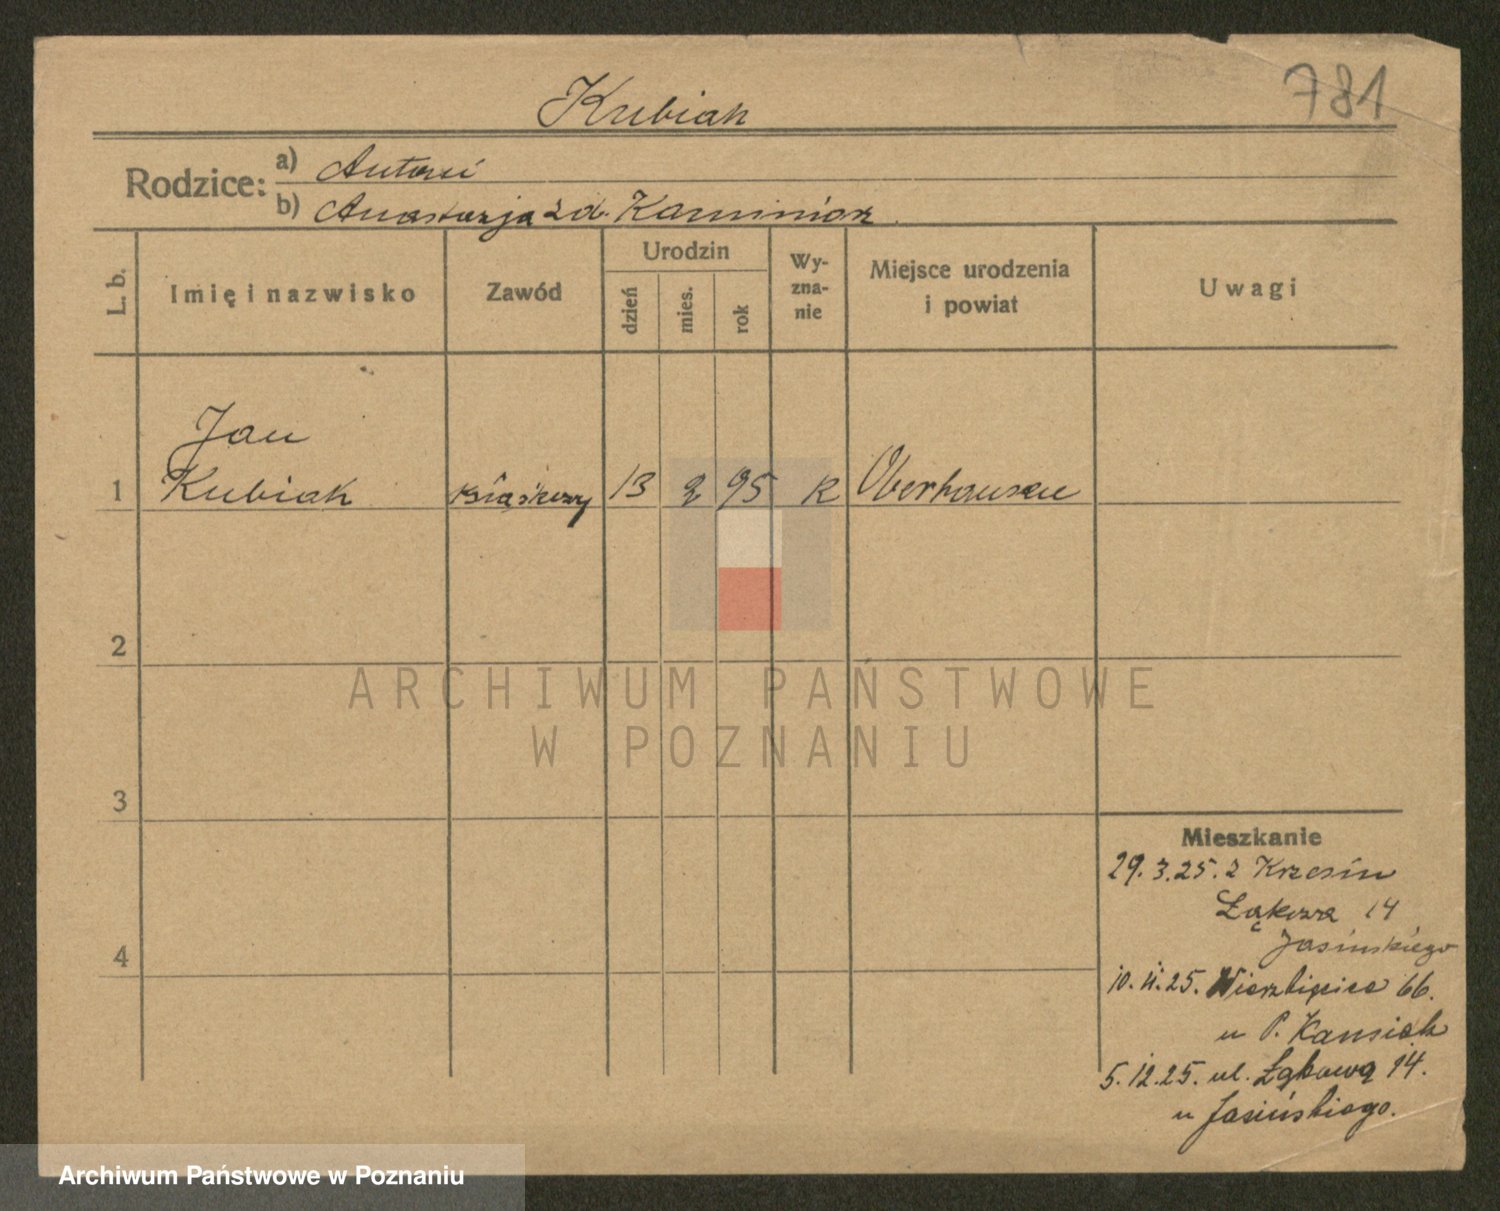 781
Kubiak
Rodzice: a) Antoni
b) Anastazja zd. Kazmierz
L. b. Imię i nazwisko Zawód Urodzin dzień mies. rok Wyznanie Miejsce urodzenia i powiat Uwagi
Jan
1 Kubiak 13 2 95 k Oberhausen
2
3
4
Mieszkanie
29.3.25. z Krzesin
Łąkowa 14
Jasińskiego
10. 11. 25. Wierzbięcice 66.
u P.
5.12.25. ul. Łąkowa 14.
u Jasińskiego.
ARCHIWUM PAŃSTWOWE
W POZNANIU
Archiwum Państwowe w Poznaniu